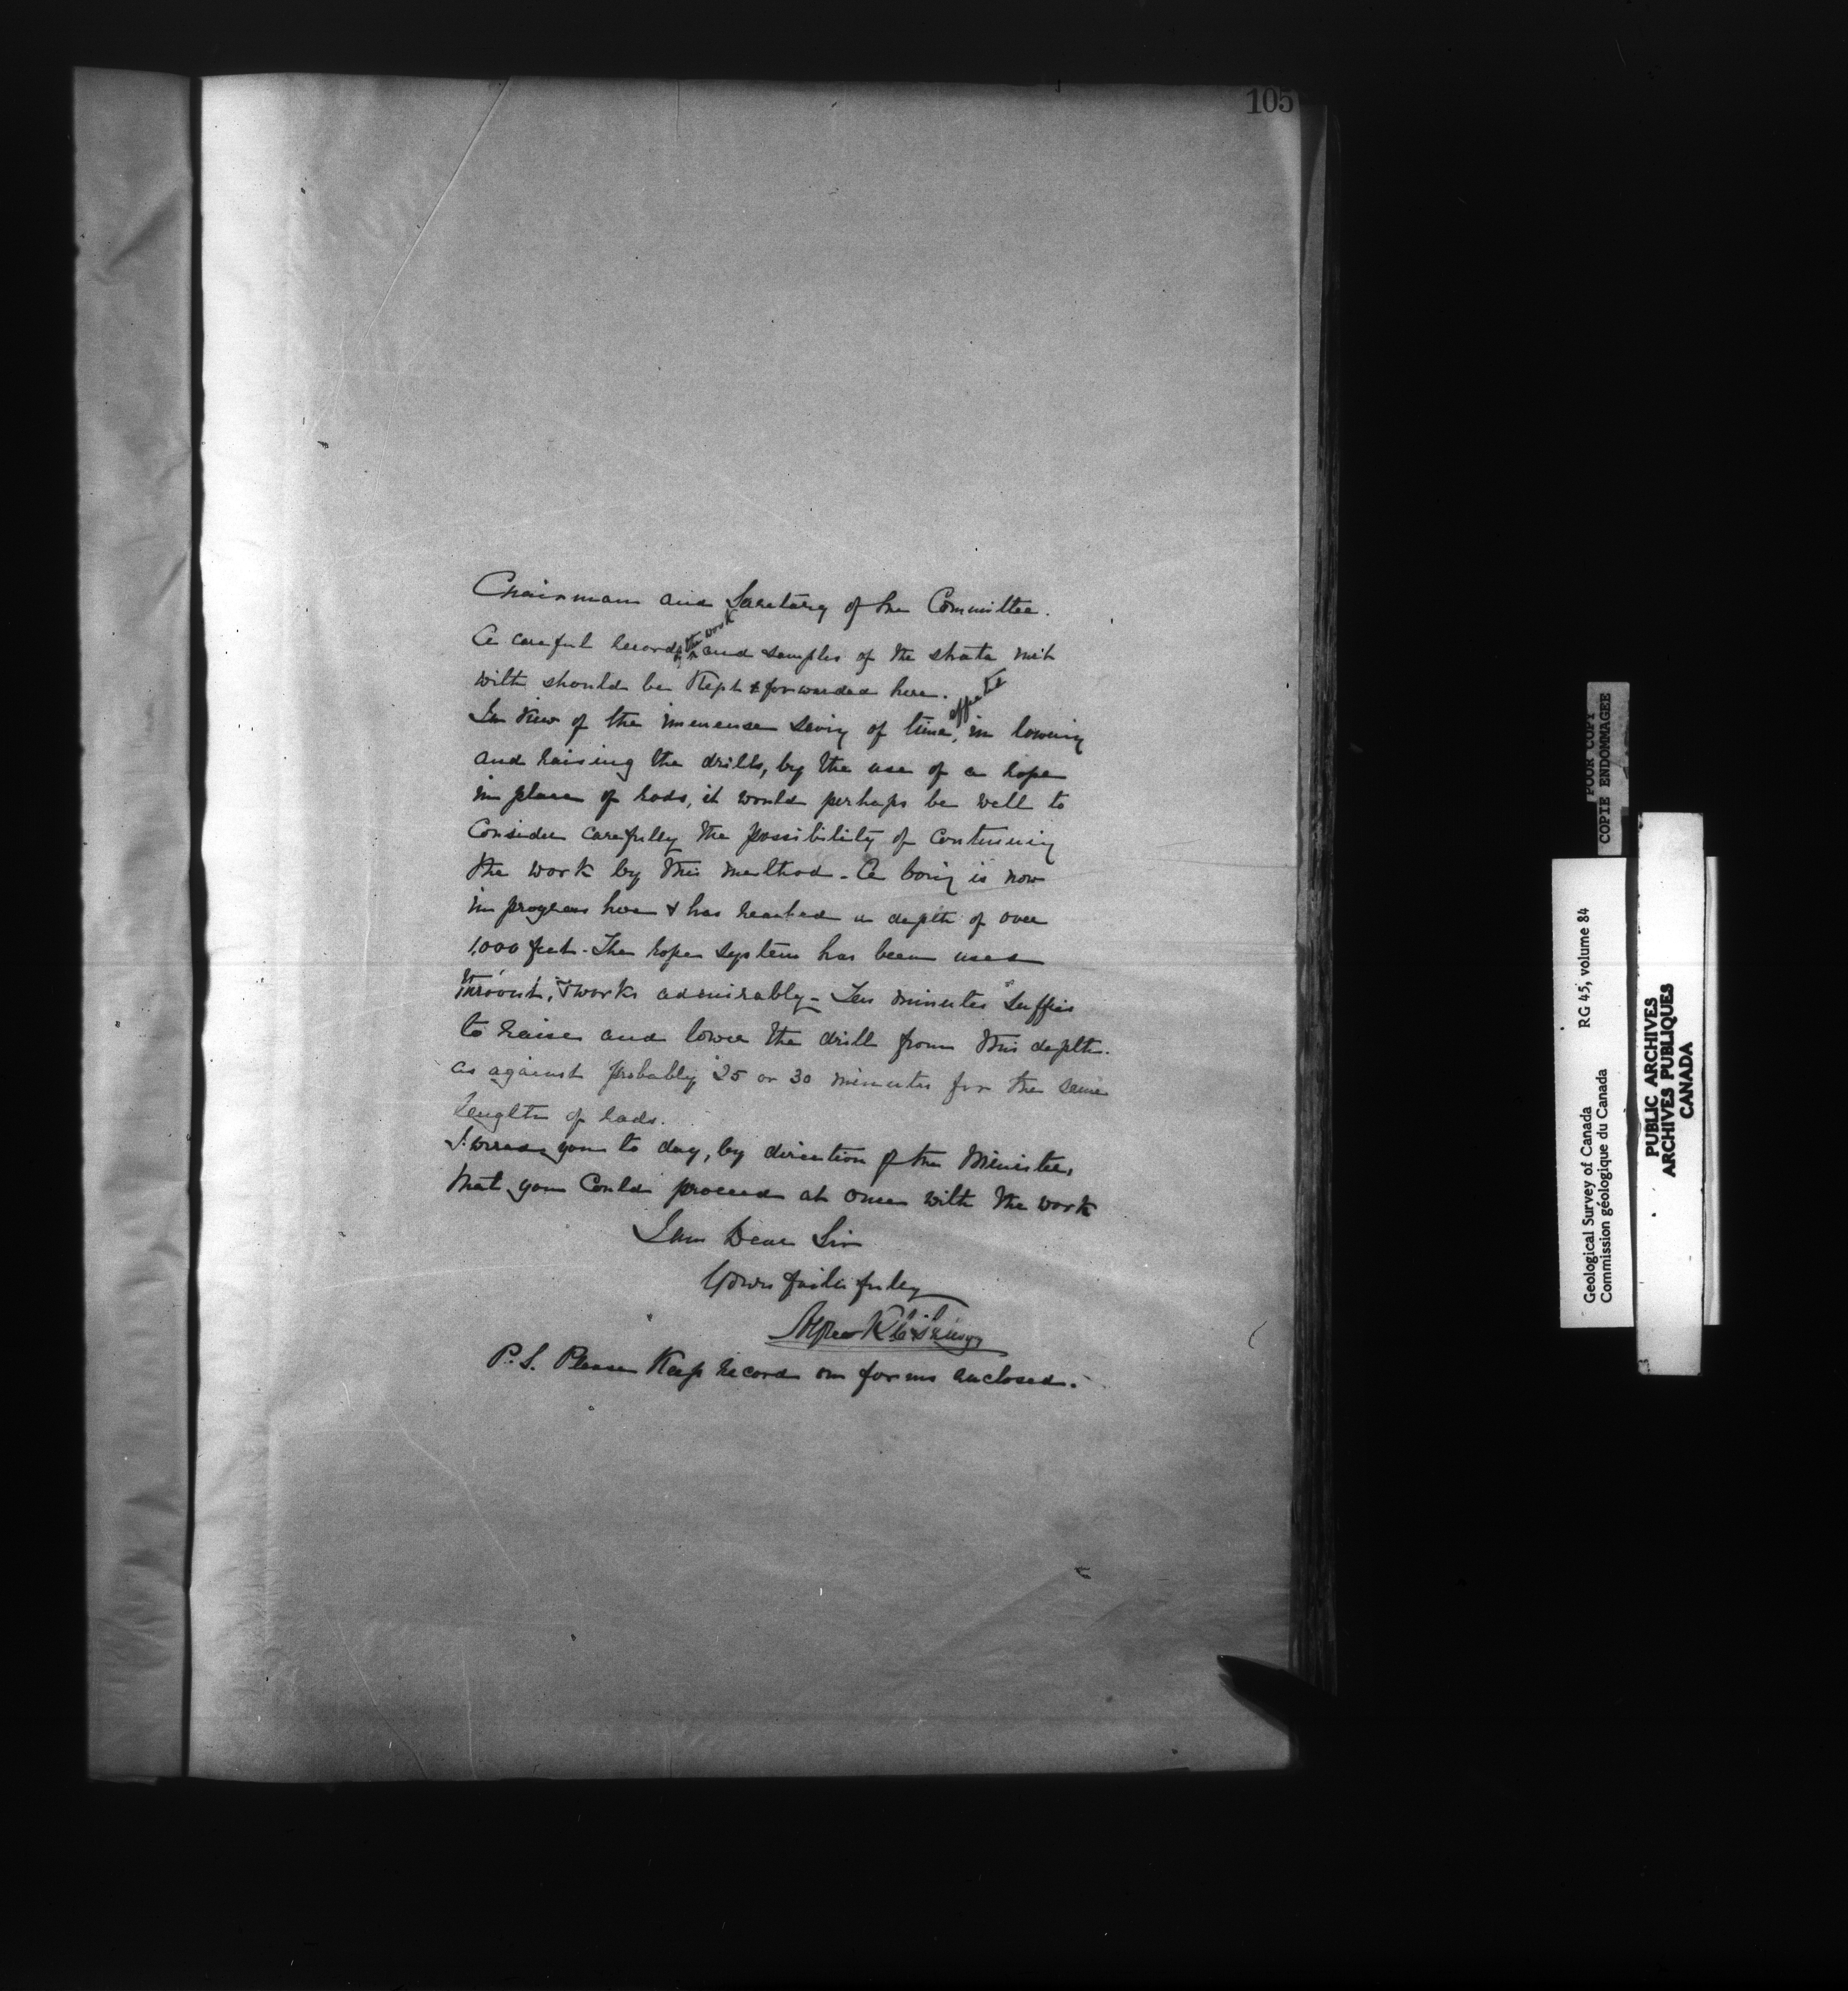 105
Chairman and Secretary of the Committee.
A careful record of the work and samples of the strata met
with should be kept & forwarded here.
In view of the immense saving of time, effected in lowering
and raising the drills, by the use of a rope
in place of rods, it would perhaps be well to
consider carefully the possibility of continuing
the work by this method - A boring is now
in progress here & has reached a depth of over
1,000 feet - The rope system has been used
thro'out, & works admirably - Ten minutes suffices
to raise and lower the drill from this depth.
as against probably 25 or 30 minutes for the same
length of rods.
I wired you to day, by direction of the Minister,
that you could proceed at once with the work
I am Dear Sir
Yours faithfully
Alfred R C Selwyn
P.S. Please Keep record on forms enclosed.
POOR COPY
COPIE ENDOMMAGEE
Geological Survey of Canada RG 45, volume 84
Commission géologique du Canada
PUBLIC ARCHIVES
ARCHIVES PUBLIQUES
CANADA